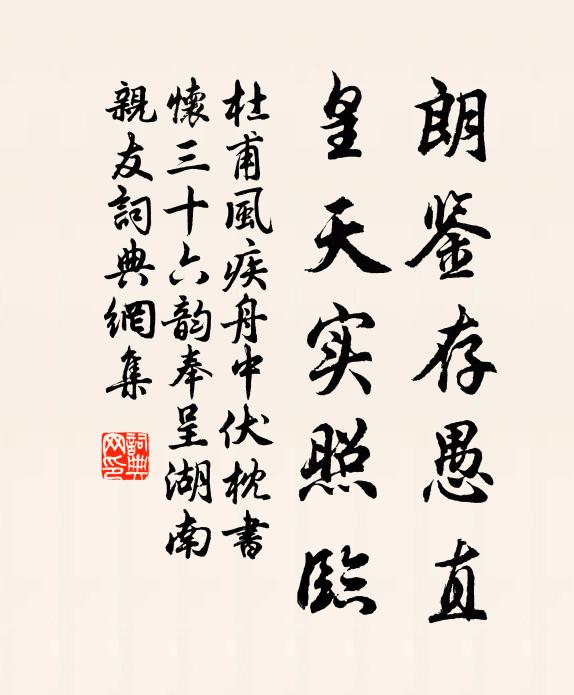 朗鉴存愚直
皇天实照臨
杜甫風疾舟中伏枕書
懷三十六韵奉呈湖南
親友詞典網集
詞典
网印